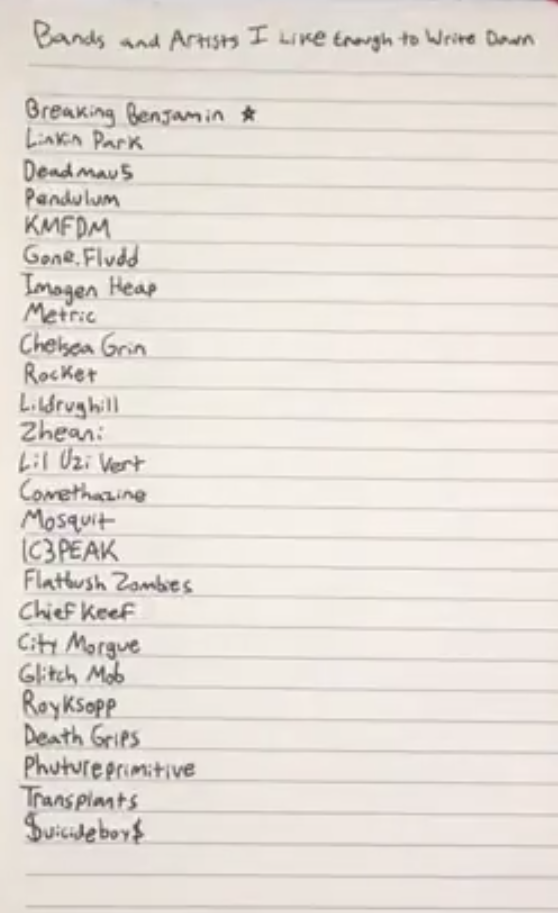 Bands and Artists I Like Enough to Write Down
Breaking Benjamin ★
Linkin Park
Deadmau5
Pendulum
KMFDM
Gone.Fludd
Imogen Heap
Metric
Chelsea Grin
Rocket
Lildrughill
Zheani
Lil Uzi Vert
Comethazine
Mosquit
IC3PEAK
Flatbush Zombies
Chief Keef
City Morgue
Glitch Mob
Royksopp
Death Grips
Phutureprimitive
Transplants
$uicideboy$